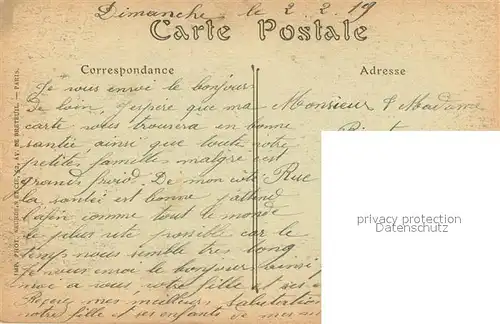 Dimanche le 2.2.19
Carte Postale
Correspondance
Adresse
Je vous envoi le bonjour
De loin, j'espère que ma
carte vous trousera en bonne
santée ainsi que toute votre
petites familles malgré cest
grands froid. De mon côté
la santei est bonne j'attend
comme tout le monde
le plus vite possible car le
temps nous semble très long
Je vous envoi le bonjour ainsi
envoi a vous votre fille et ses
mes meilleurs salutation
votre fille et ses enfants de mes
Monsieur & Madame
Rue
privacy protection
Datenschutz
IMP. PHOT. PARIS.